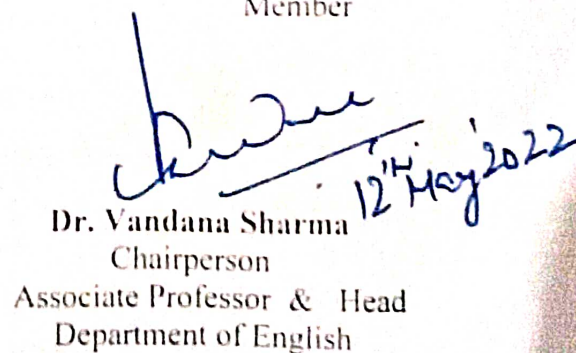 Member
12th May' 2022
Dr. Vandana Sharma
Chairperson
Associate Professor & Head
Department of English